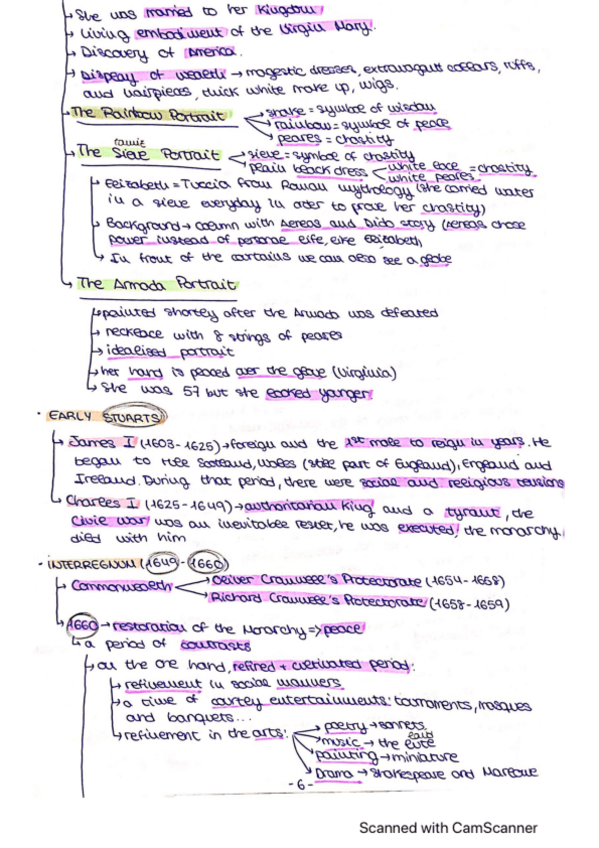 ↳ She was married to her Kingdom
↳ Living embodiment of the Virgin Mary.
↳ Discovery of America.
↳ Display of wealth → magestic dresses, extravagant collars, ruffs,
and hairpieces, thick white make up, wigs.
The Rainbow Portrait
snake = symbol of wisdom
rainbow = symbol of peace
pearls = chastity
The Sieve Portrait
sieve = symbol of chastity
plain black dress
white lace
white pearls
= chastity
↳ Elizabeth = Tuccia from Roman mythology (she carried water
in a sieve everyday in order to prove her chastity)
↳ Background → column with Aeneas and Dido story (Aeneas chose
power instead of personal life, like Elizabeth
↳ In front of the curtains we can also see a globe
↳ The Armada Portrait
↳ painted shortly after the Armada was defeated
↳ necklace with 8 strings of pearls
↳ idealised portrait
↳ her hand is placed over the globe (Virginia)
↳ She was 57 but she looked younger
· EARLY STUARTS
↳ James I (1603-1625) → foreign and the 1st male to reign in years. He
began to rule Scotland, Wales (still part of England), England and
Ireland. During that period, there were social and religious tensions
↳ Charles I (1625-1649) → authoritarian King and a tyrant, the
Civil War was an inevitable result, he was executed, the monarchy
died with him
· INTERREGNUM (1649-1660)
↳ Commonwealth
Oliver Cromwell's Protectorate (1654-1658)
Richard Cromwell's Protectorate (1658-1659)
↳ 1660 → restoration of the Monarchy => peace
↳ a period of contrasts
↳ on the one hand, refined + cultivated period:
↳ refinement in social manners
↳ a time of courtly entertainments: tournaments, masques
and banquets...
↳ refinement in the arts:
poetry → sonnets.
music → the lute
painting → miniature
Drama → Shakespeare and Marlowe
-6-
Scanned with CamScanner